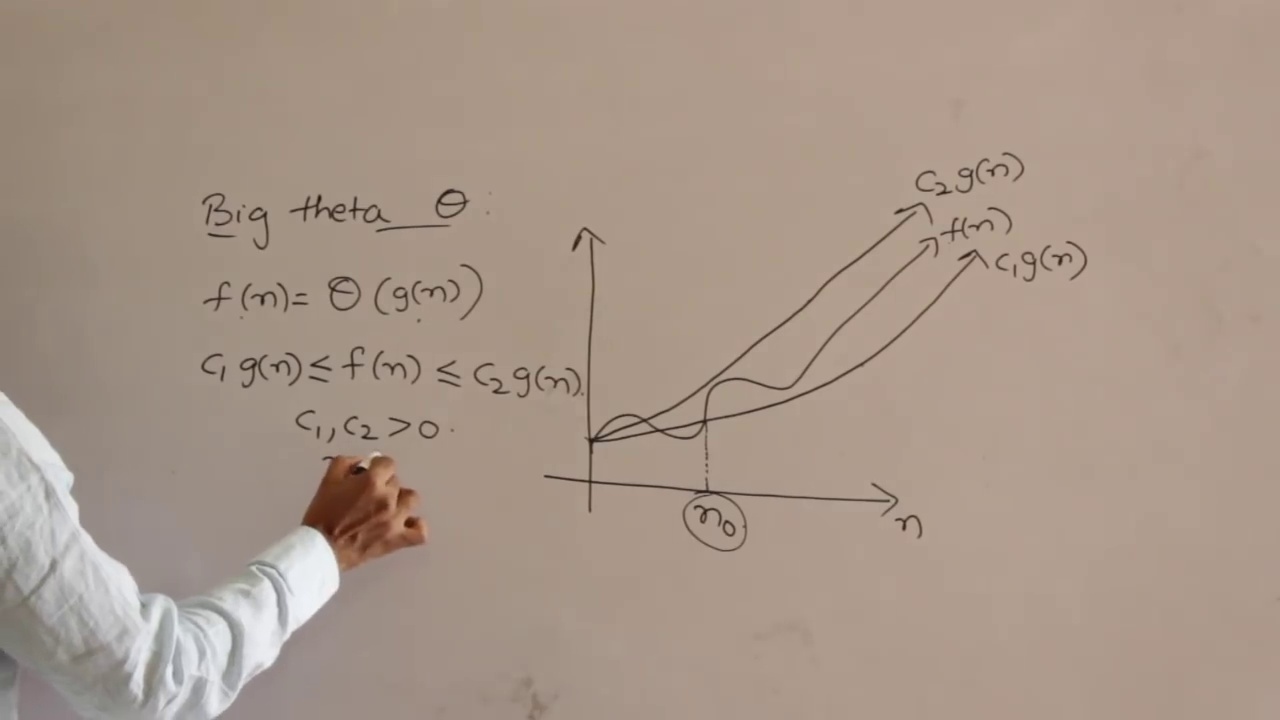 Big theta Θ:
f(n) = Θ(g(n))
c₁ g(n) ≤ f(n) ≤ c₂ g(n).
c₁, c₂ > 0.
c₂ g(n)
f(n)
c₁ g(n)
n₀
n